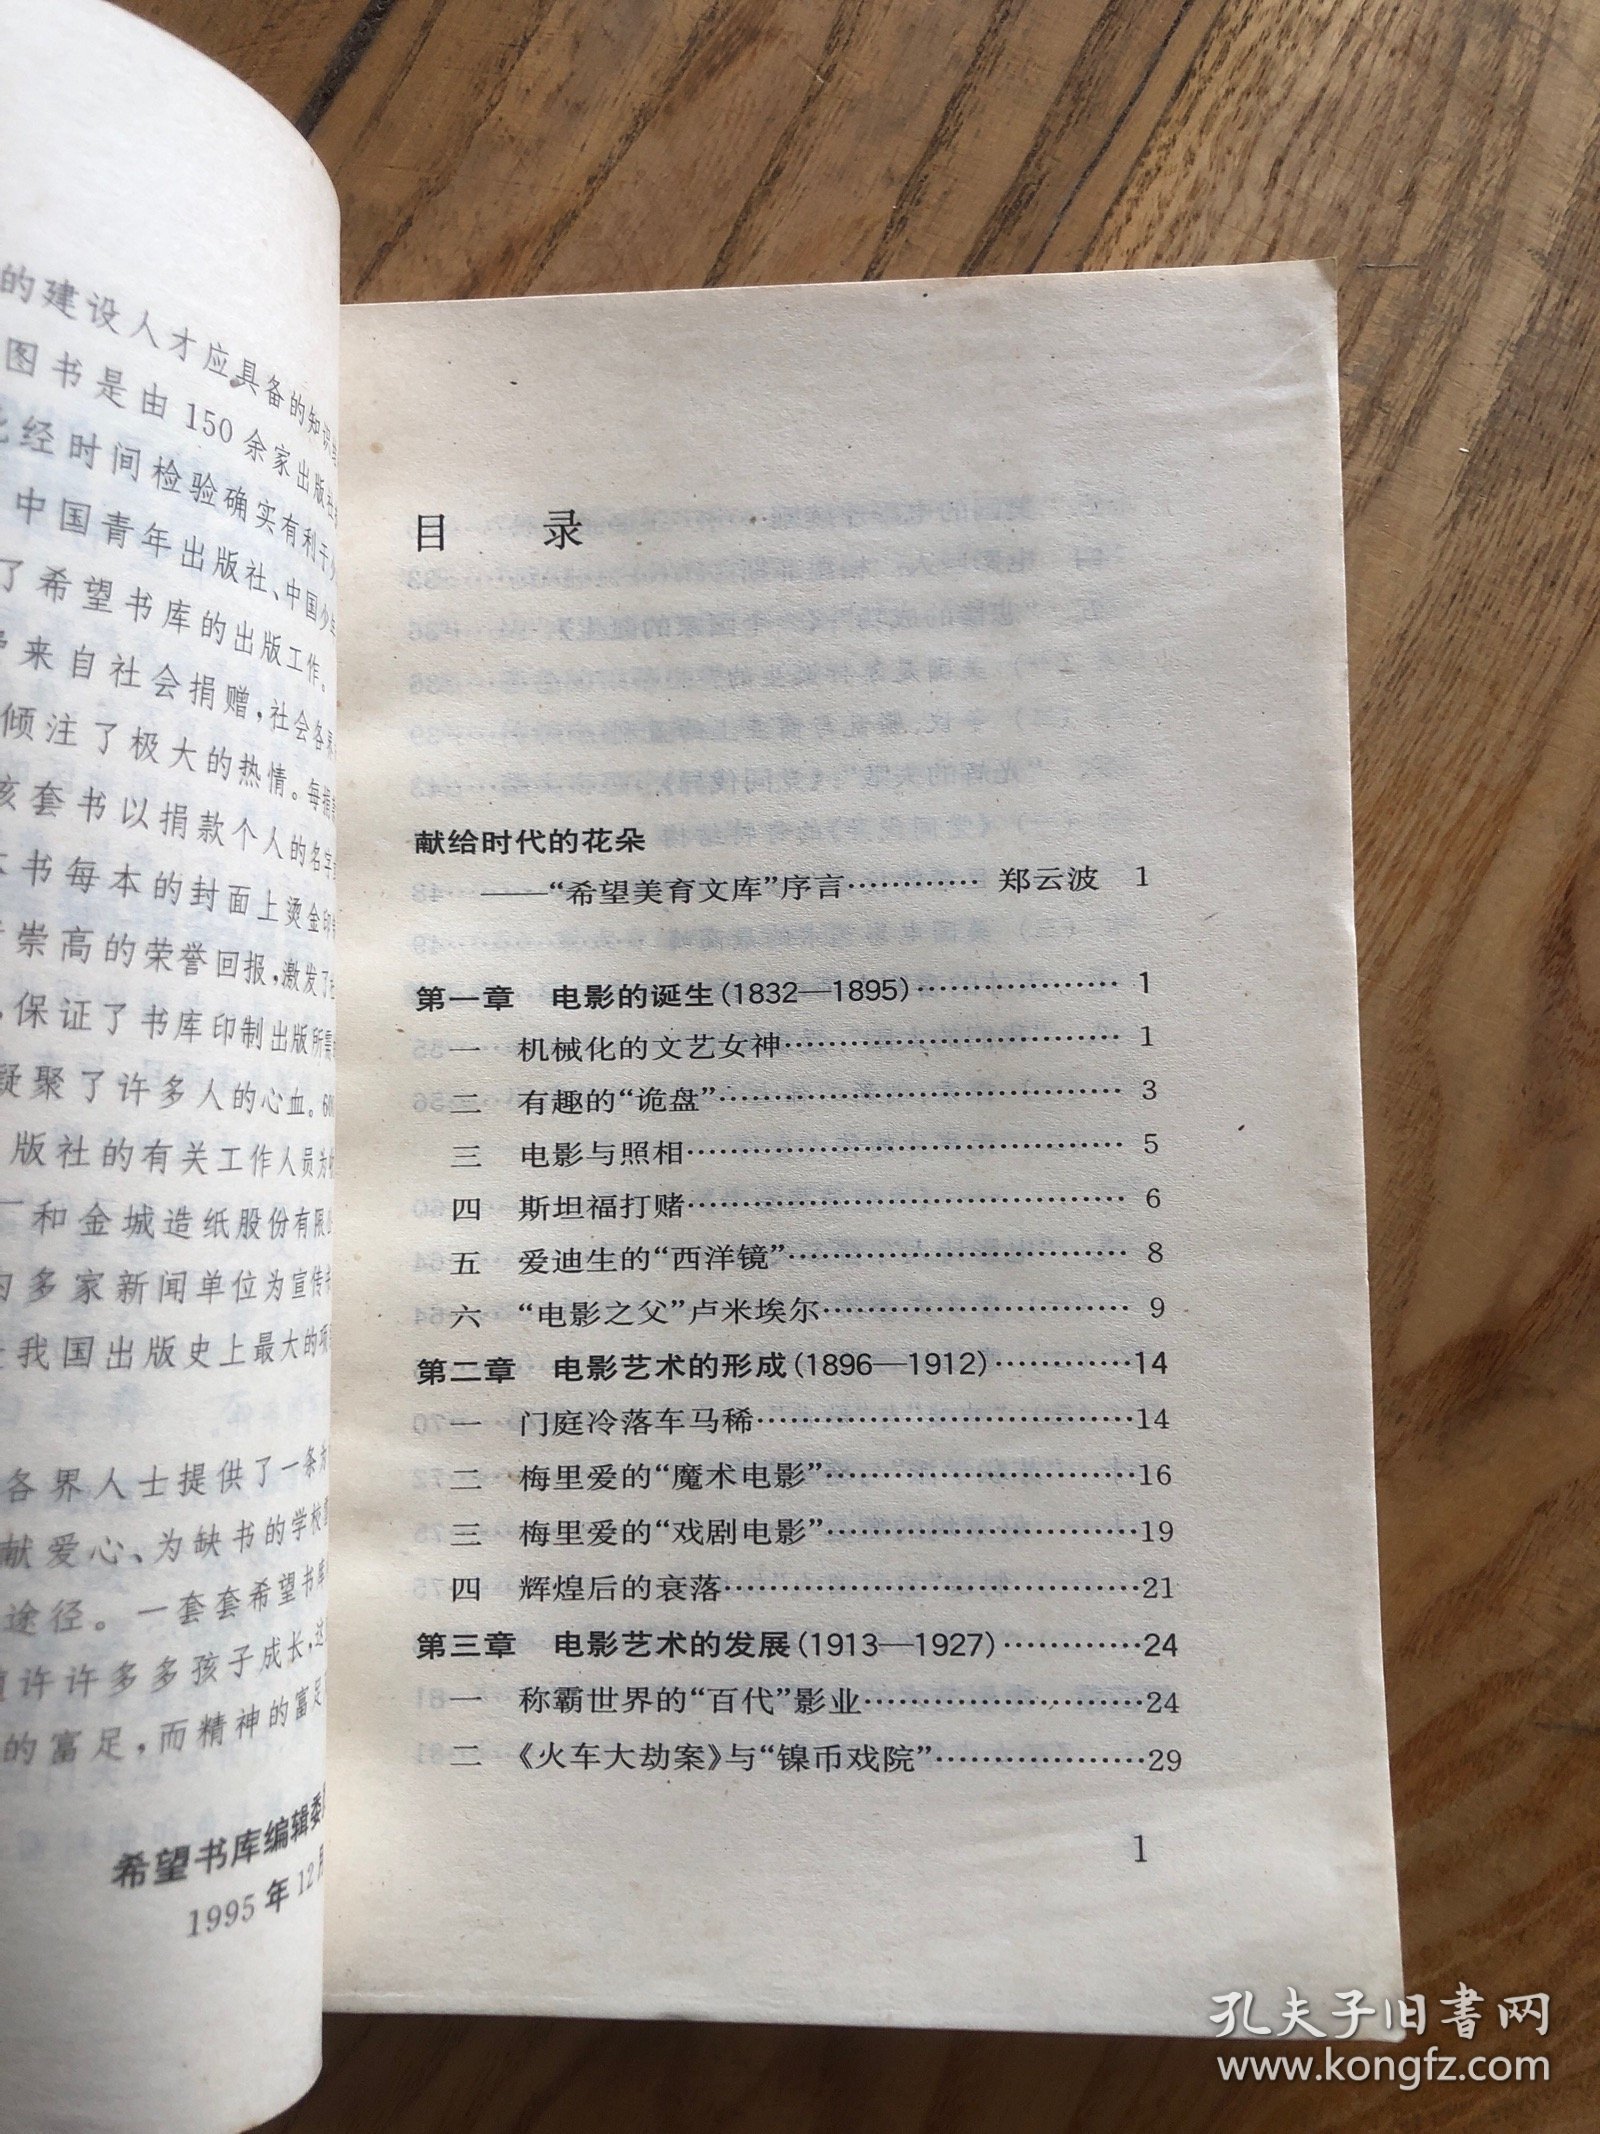 的建设人才应具备的知识
图书是由150余家出版社
经时间检验确实有利于
中国青年出版社、中国少年
了希望书库的出版工作。
来自社会捐赠，社会各界
倾注了极大的热情。每捐
该套书以捐款个人的名字
本书每本的封面上烫金印
崇高的荣誉回报，激发了
，保证了书库印制出版所需
凝聚了许多人的心血。
版社的有关工作人员为
和金城造纸股份有限
多家新闻单位为宣传
我国出版史上最大的项
各界人士提供了一条
献爱心、为缺书的学校
途径。一套套希望书库
许许多多孩子成长，这
的富足，而精神的富足
希望书库编辑委
1995年12月
目 录
献给时代的花朵
——“希望美育文库”序言………… 郑云波 1
第一章 电影的诞生(1832—1895)……………… 1
一 机械化的文艺女神………………………… 1
二 有趣的“诡盘”……………………………… 3
三 电影与照相………………………………… 5
四 斯坦福打赌………………………………… 6
五 爱迪生的“西洋镜”………………………… 8
六 “电影之父”卢米埃尔……………………… 9
第二章 电影艺术的形成(1896—1912)…………14
一 门庭冷落车马稀……………………………14
二 梅里爱的“魔术电影”………………………16
三 梅里爱的“戏剧电影”………………………19
四 辉煌后的衰落………………………………21
第三章 电影艺术的发展(1913—1927)…………24
一 称霸世界的“百代”影业……………………24
二 《火车大劫案》与“镍币戏院”………………29
1
孔夫子旧書网
www.kongfz.com